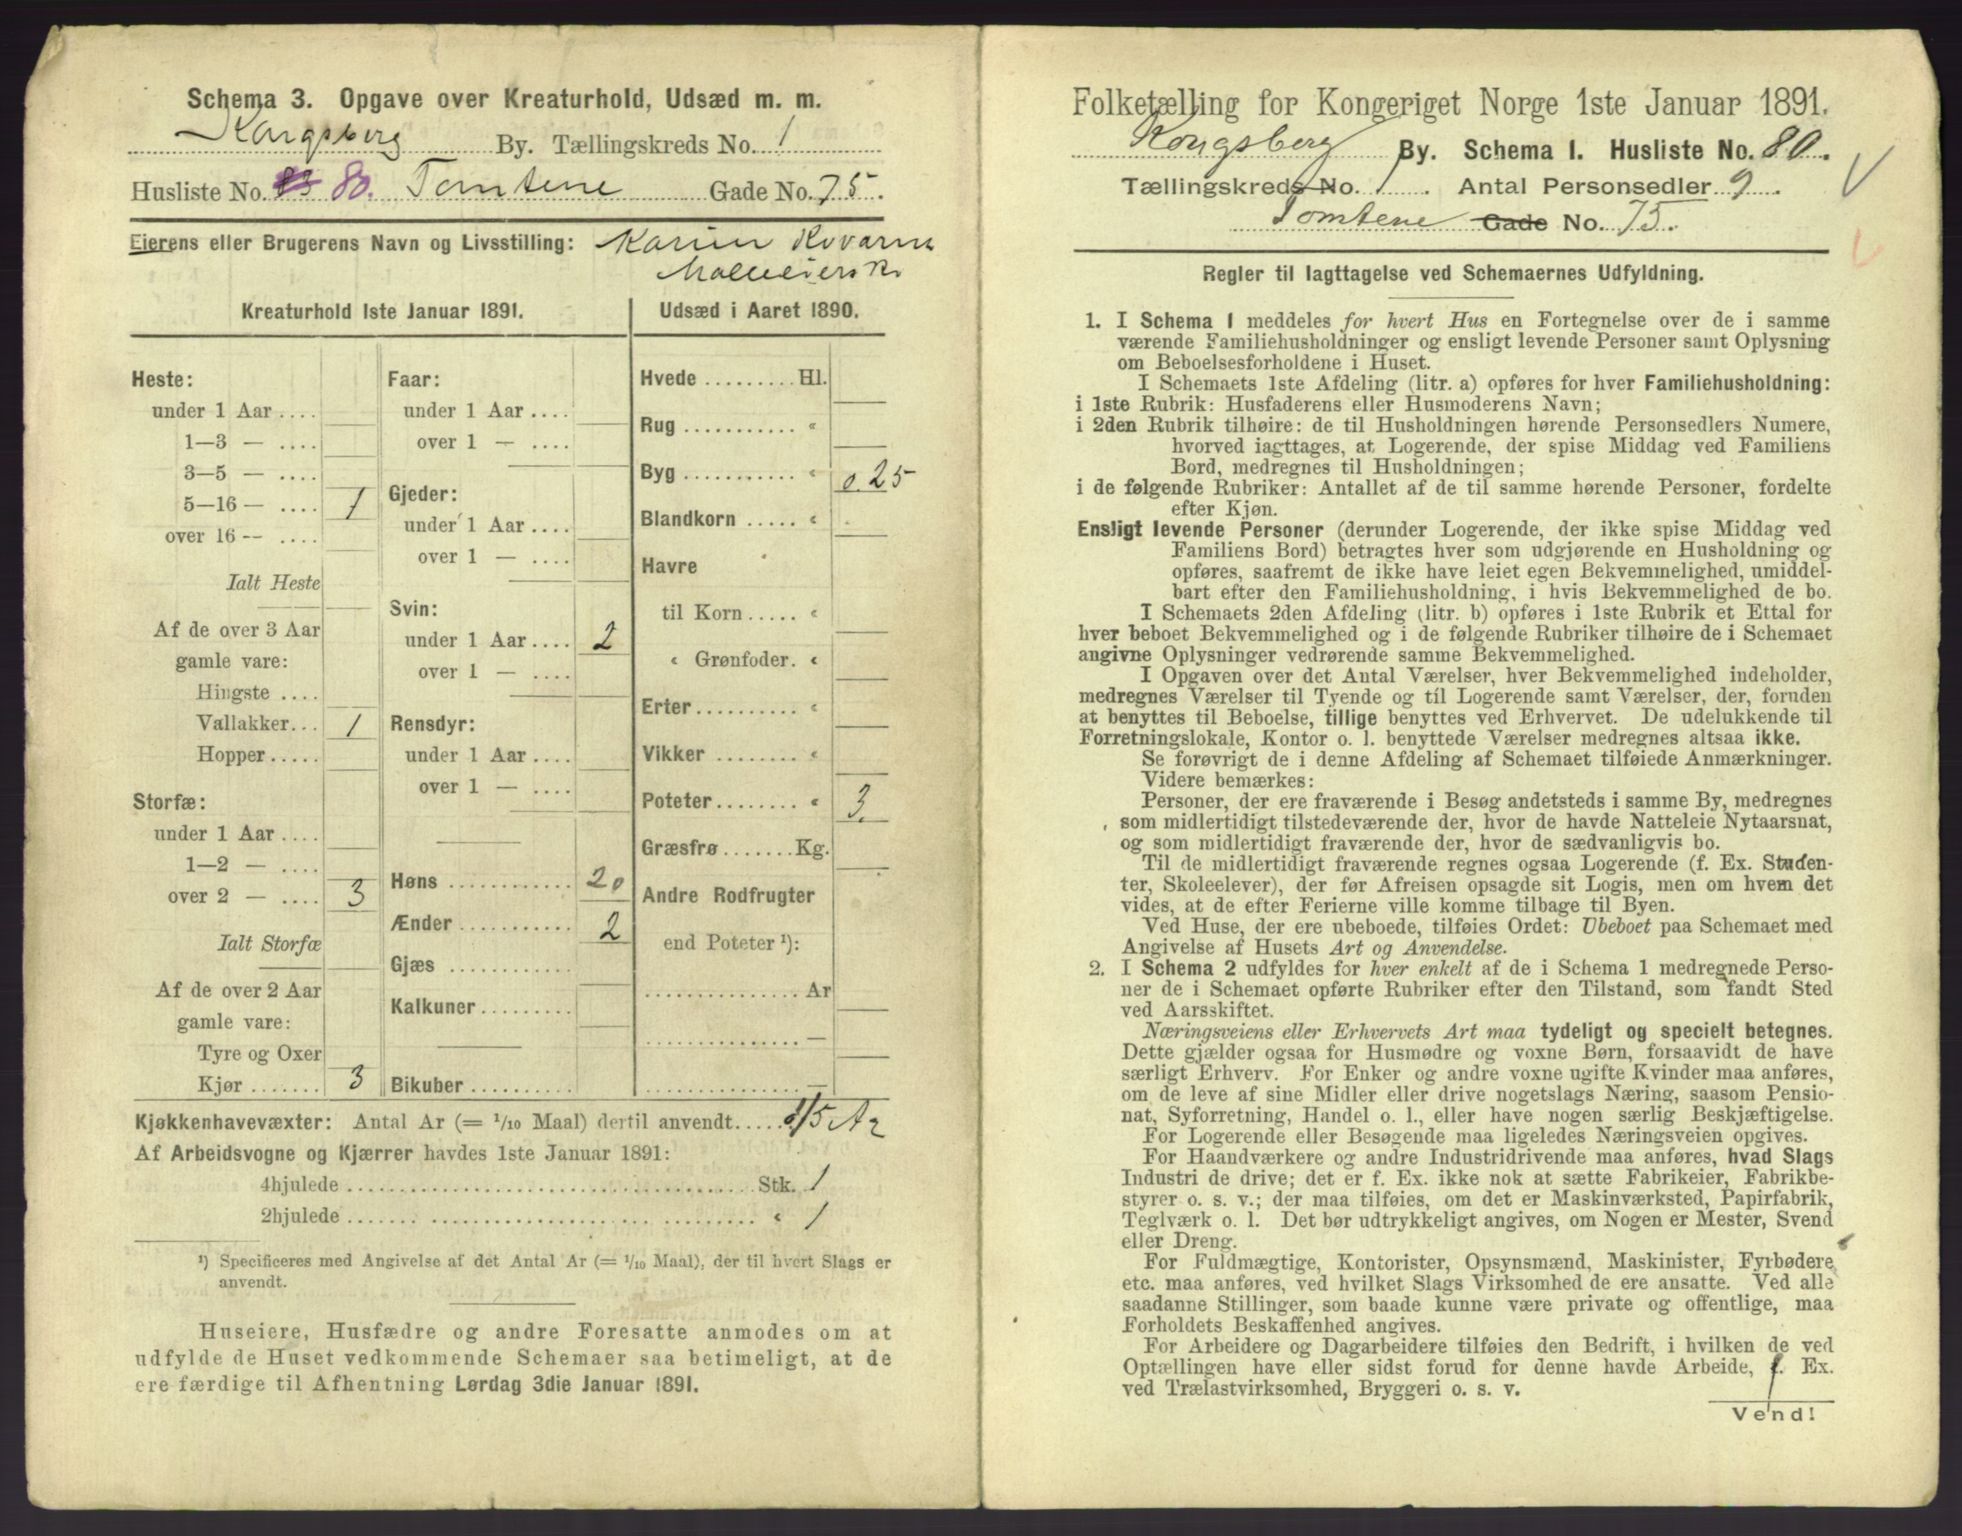 Schema 3. Opgave over Kreaturhold, Udsæd m. m.
Kongsberg By. Tællingskreds No. 1
Husliste No. 83 80. Tomtene Gade No. 75.
Eierens eller Brugerens Navn og Livsstilling: Karine
Kreaturhold 1ste Januar 1891.
Heste:
under 1 Aar ....
1—3 — ....
3—5 — ....
5—16 — .... 1
over 16 — ....
Ialt Heste
Af de over 3 Aar
gamle vare:
Hingste ....
Vallakker... 1
Hopper.....
Storfæ:
under 1 Aar ....
1—2 — ....
over 2 — .... 3
Ialt Storfæ
Af de over 2 Aar
gamle vare:
Tyre og Oxer
Kjør ....... 3
Faar:
under 1 Aar ....
over 1 — ....
Gjeder:
under 1 Aar ....
over 1 — ....
Svin:
under 1 Aar .... 2
over 1 — ....
Rensdyr:
under 1 Aar ....
over 1 — ....
Høns ........... 20
Ænder ........... 2
Gjæs ...........
Kalkuner.........
Bikuber ..........
Udsæd i Aaret 1890.
Hvede ......... Hl.
Rug ........... «
Byg ........... « 0.25
Blandkorn ..... «
Havre
til Korn ..... «
« Grønfoder. «
Erter.......... «
Vikker ........ «
Poteter........ « 3.
Græsfrø ....... Kg.
Andre Rodfrugter
end Poteter ¹):
............... Ar
............... —
............... —
Kjøkkenhavevæxter: Antal Ar (= 1/10 Maal) dertil anvendt..... 1/5 Ar
Af Arbeidsvogne og Kjærrer havdes 1ste Januar 1891:
4hjulede ........................................ Stk. 1
2hjulede ........................................ « 1
¹) Specificeres med Angivelse af det Antal Ar (= 1/10 Maal), der til hvert Slags er
anvendt.
Huseiere, Husfædre og andre Foresatte anmodes om at
udfylde de Huset vedkommende Schemaer saa betimeligt, at de
ere færdige til Afhentning Lørdag 3die Januar 1891.
Folketælling for Kongeriget Norge 1ste Januar 1891.
Kongsberg By. Schema I. Husliste No. 80.
Tællingskreds No. 1. Antal Personsedler 9.
Tomtene Gade No. 75.
Regler til Iagttagelse ved Schemaernes Udfyldning.
1. I Schema 1 meddeles for hvert Hus en Fortegnelse over de i samme
værende Familiehusholdninger og ensligt levende Personer samt Oplysning
om Beboelsesforholdene i Huset.
I Schemaets 1ste Afdeling (litr. a) opføres for hver Familiehusholdning:
i 1ste Rubrik: Husfaderens eller Husmoderens Navn;
i 2den Rubrik tilhøire: de til Husholdningen hørende Personsedlers Numere,
hvorved iagttages, at Logerende, der spise Middag ved Familiens
Bord, medregnes til Husholdningen;
i de følgende Rubriker: Antallet af de til samme hørende Personer, fordelte
efter Kjøn.
Ensligt levende Personer (derunder Logerende, der ikke spise Middag ved
Familiens Bord) betragtes hver som udgjørende en Husholdning og
opføres, saafremt de ikke have leiet egen Bekvemmelighed, umiddel-
bart efter den Familiehusholdning, i hvis Bekvemmelighed de bo.
I Schemaets 2den Afdeling (litr. b) opføres i 1ste Rubrik et Ettal for
hver beboet Bekvemmelighed og i de følgende Rubriker tilhøire de i Schemaet
angivne Oplysninger vedrørende samme Bekvemmelighed.
I Opgaven over det Antal Værelser, hver Bekvemmelighed indeholder,
medregnes Værelser til Tyende og til Logerende samt Værelser, der, foruden
at benyttes til Beboelse, tillige benyttes ved Erhvervet. De udelukkende til
Forretningslokale, Kontor o. l. benyttede Værelser medregnes altsaa ikke.
Se forøvrigt de i denne Afdeling af Schemaet tilføiede Anmærkninger.
Videre bemærkes:
Personer, der ere fraværende i Besøg andetsteds i samme By, medregnes
som midlertidigt tilstedeværende der, hvor de havde Natteleie Nytaarsnat,
og som midlertidigt fraværende der, hvor de sædvanligvis bo.
Til de midlertidigt fraværende regnes ogsaa Logerende (f. Ex. Studen-
ter, Skoleelever), der før Afreisen opsagde sit Logis, men om hvem det
vides, at de efter Ferierne ville komme tilbage til Byen.
Ved Huse, der ere ubeboede, tilføies Ordet: Ubeboet paa Schemaet med
Angivelse af Husets Art og Anvendelse.
2. I Schema 2 udfyldes for hver enkelt af de i Schema 1 medregnede Perso-
ner de i Schemaet opførte Rubriker efter den Tilstand, som fandt Sted
ved Aarsskiftet.
Næringsveiens eller Erhvervets Art maa tydeligt og specielt betegnes.
Dette gjælder ogsaa for Husmødre og voxne Børn, forsaavidt de have
særligt Erhverv. For Enker og andre voxne ugifte Kvinder maa anføres,
om de leve af sine Midler eller drive nogetslags Næring, saasom Pensio-
nat, Syforretning, Handel o. l., eller have nogen særlig Beskjæftigelse.
For Logerende eller Besøgende maa ligeledes Næringsveien opgives.
For Haandværkere og andre Industridrivende maa anføres, hvad Slags
Industri de drive; det er f. Ex. ikke nok at sætte Fabrikeier, Fabrikbe-
styrer o. s. v.; der maa tilføies, om det er Maskinværksted, Papirfabrik,
Teglværk o. l. Det bør udtrykkeligt angives, om Nogen er Mester, Svend
eller Dreng.
For Fuldmægtige, Kontorister, Opsynsmænd, Maskinister, Fyrbødere
etc. maa anføres, ved hvilket Slags Virksomhed de ere ansatte. Ved alle
saadanne Stillinger, som baade kunne være private og offentlige, maa
Forholdets Beskaffenhed angives.
For Arbeidere og Dagarbeidere tilføies den Bedrift, i hvilken de ved
Optællingen have eller sidst forud for denne havde Arbeide, f. Ex.
ved Trælastvirksomhed, Bryggeri o. s. v.
Vend!